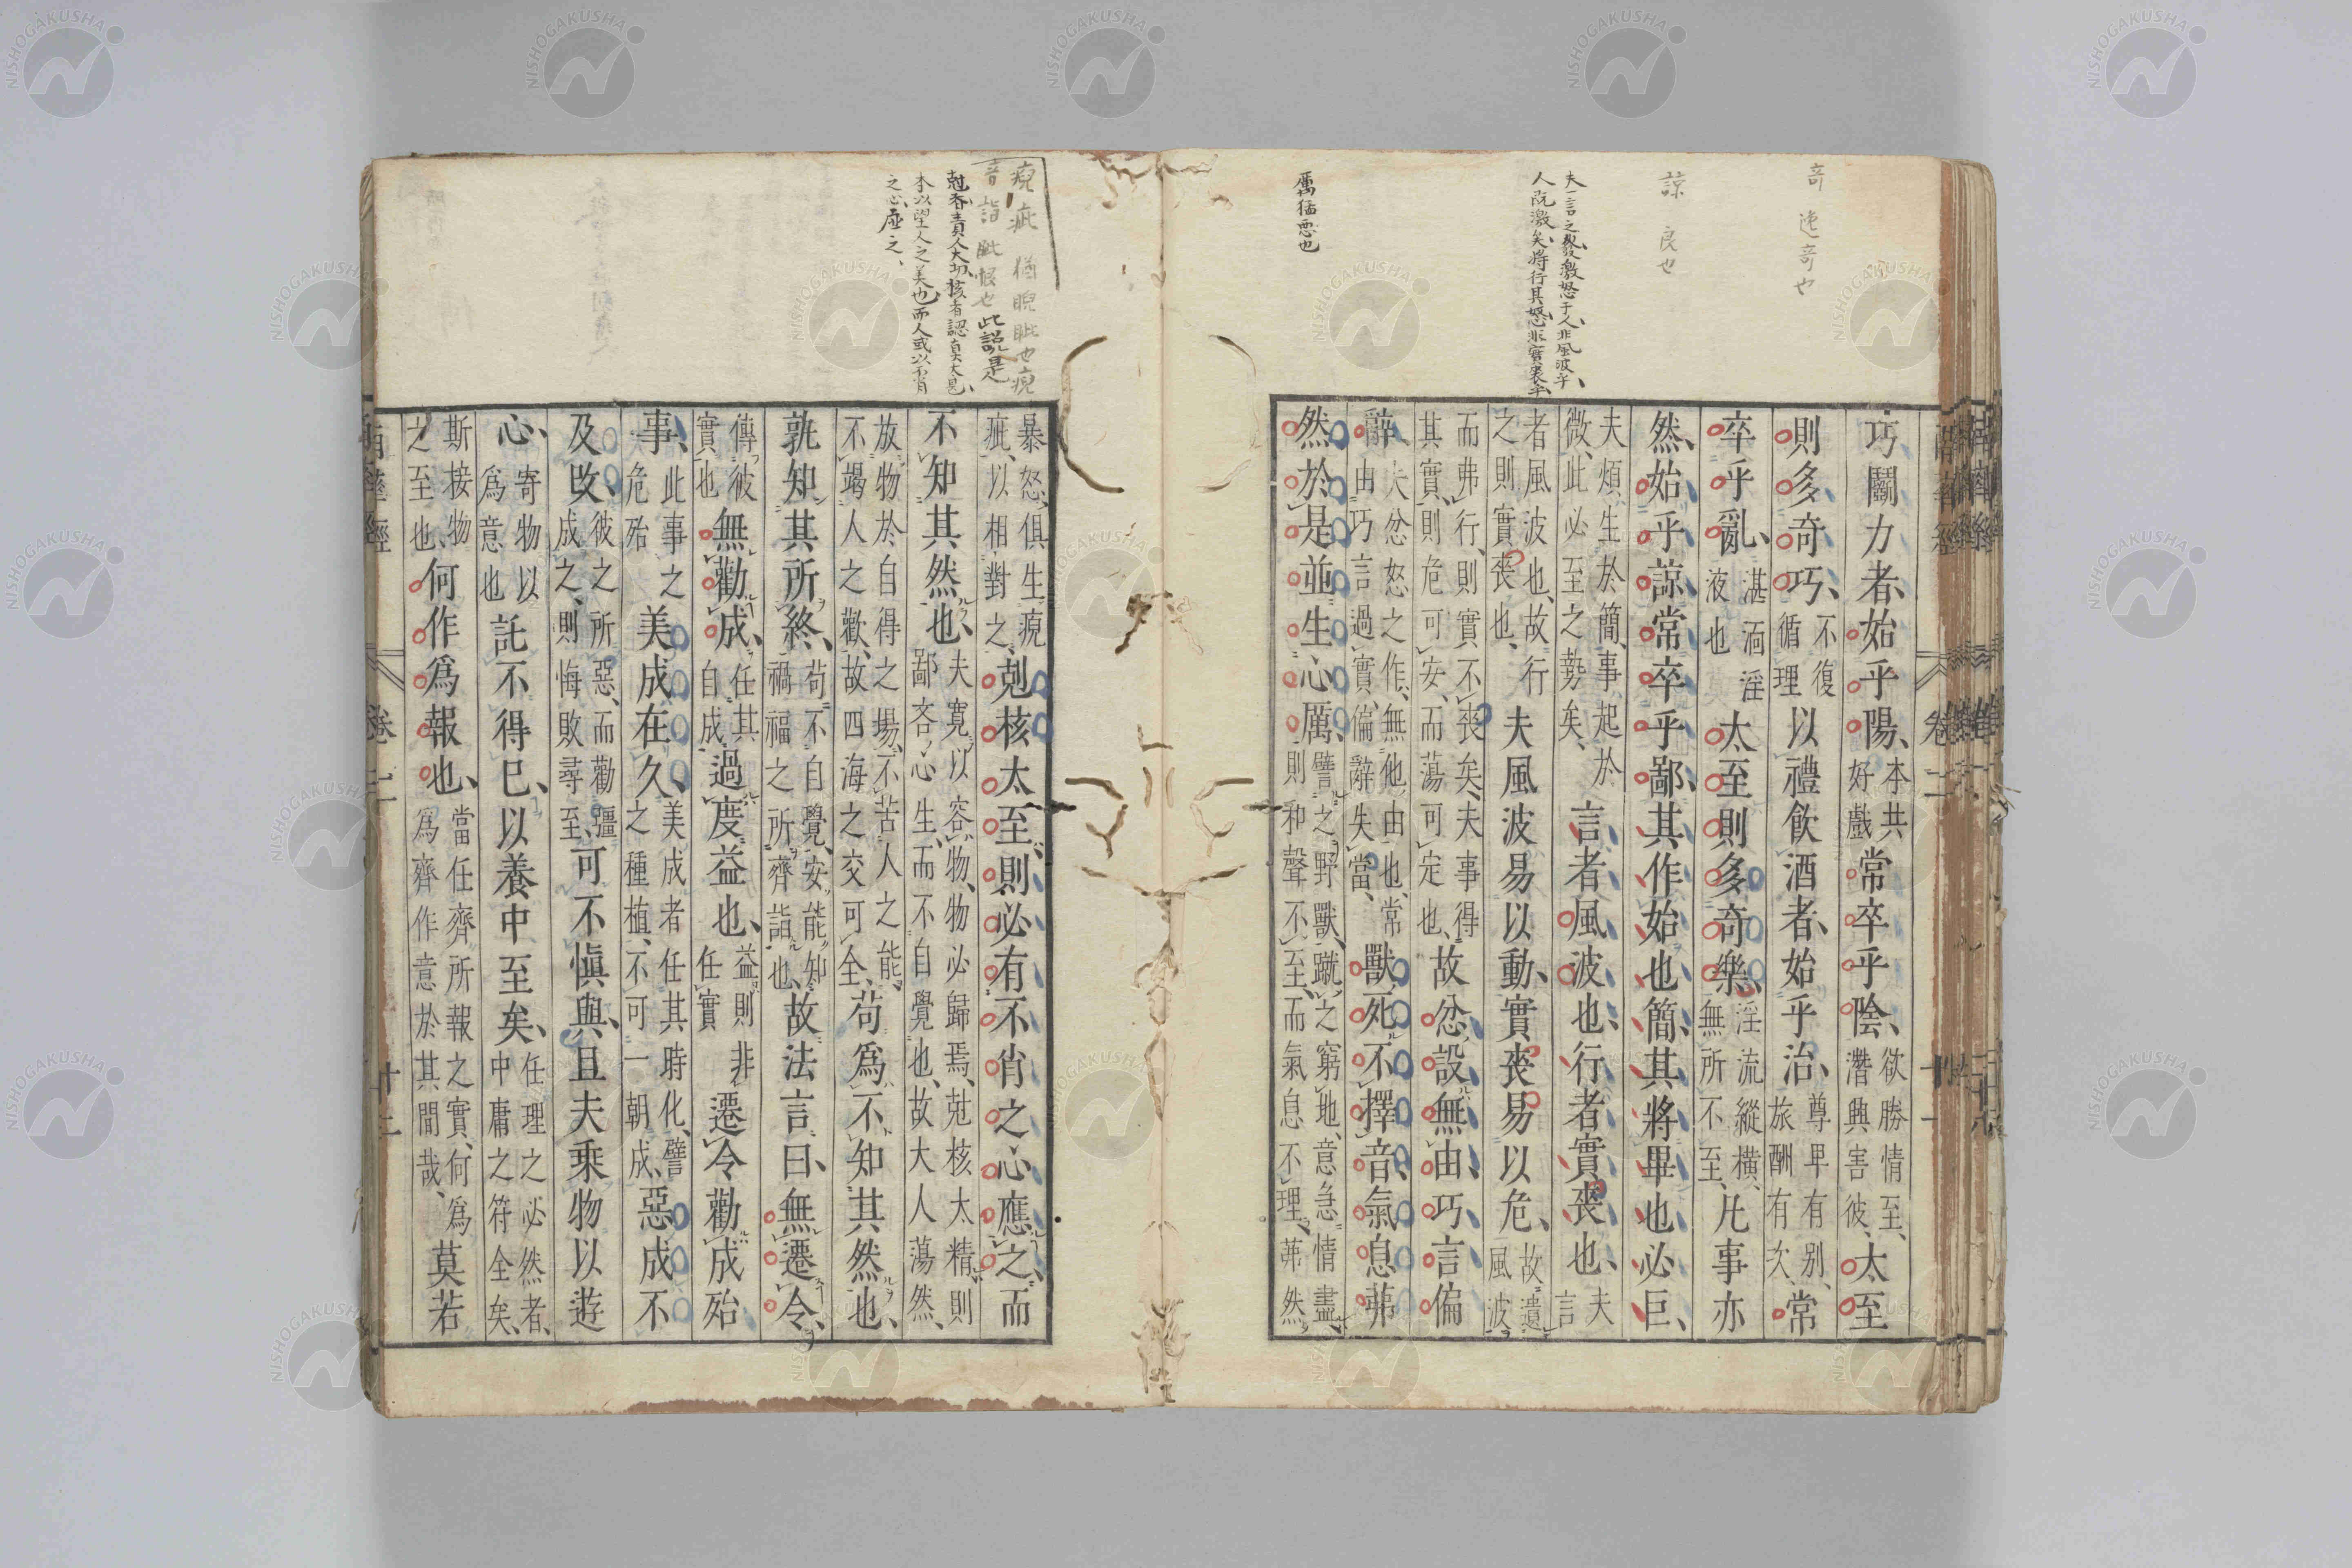 奇 速奇也
諒 良也
夫一言之發激怒于人非風波乎
人既激矣將行其怒非實喪乎
厲猛惡也
巧鬭力者始乎陽本共好戲常卒乎陰欲勝情至潛興害彼太至
則多奇巧不復循理以禮飲酒者始乎治尊卑有别旅酬有次常
卒乎亂湛湎淫液也太至則多奇樂淫流縱橫無所不至凡事亦
然始乎諒常卒乎鄙其作始也簡其將畢也必巨
夫煩生於簡事起於微此必至之勢矣言者風波也行者實喪也夫言
者風波也故行之則實喪也夫風波易以動實喪易以危故遺風波
而弗行則實不喪矣夫事得其實則危可安而蕩可定也故忿設無由巧言偏
辭夫忿怒之作無他由也常由巧言過實偏辭失當獸死不擇音氣息茀
然於是並生心厲譬之野獸蹴之窮地意急情盡則和聲不至而氣息不理茀然
瘈疵 猶睨眦也
音詣 眦恨也此説是
剋者責人太切核者認真太甚
本以望人之美也而人或以不肖
之心應之
暴怒俱生疣疵以相對之剋核太至則必有不肖之心應之而
不知其然也夫寬以容物物必歸焉剋核太精則鄙吝心生而不自覺也故大人蕩然
放物於自得之場不苦人之能不竭人之歡故四海之交可全苟爲不知其然也
孰知其所終苟不自覺安能知禍福之所齊詣也故法言曰無遷令
傳彼實也無勸成任其自成過度益也益則非任實遷令勸成殆
事此事之危殆美成在久美成者任其時化譬之種植不可一朝成惡成不
及改彼之所惡而勸彊成之則悔敗尋至可不慎與且夫乘物以遊
心寄物以爲意也託不得已以養中至矣任理之必然者中庸之符全矣
斯接物之至也何作爲報也當任齊所報之實何爲爲齊作意於其間哉莫若